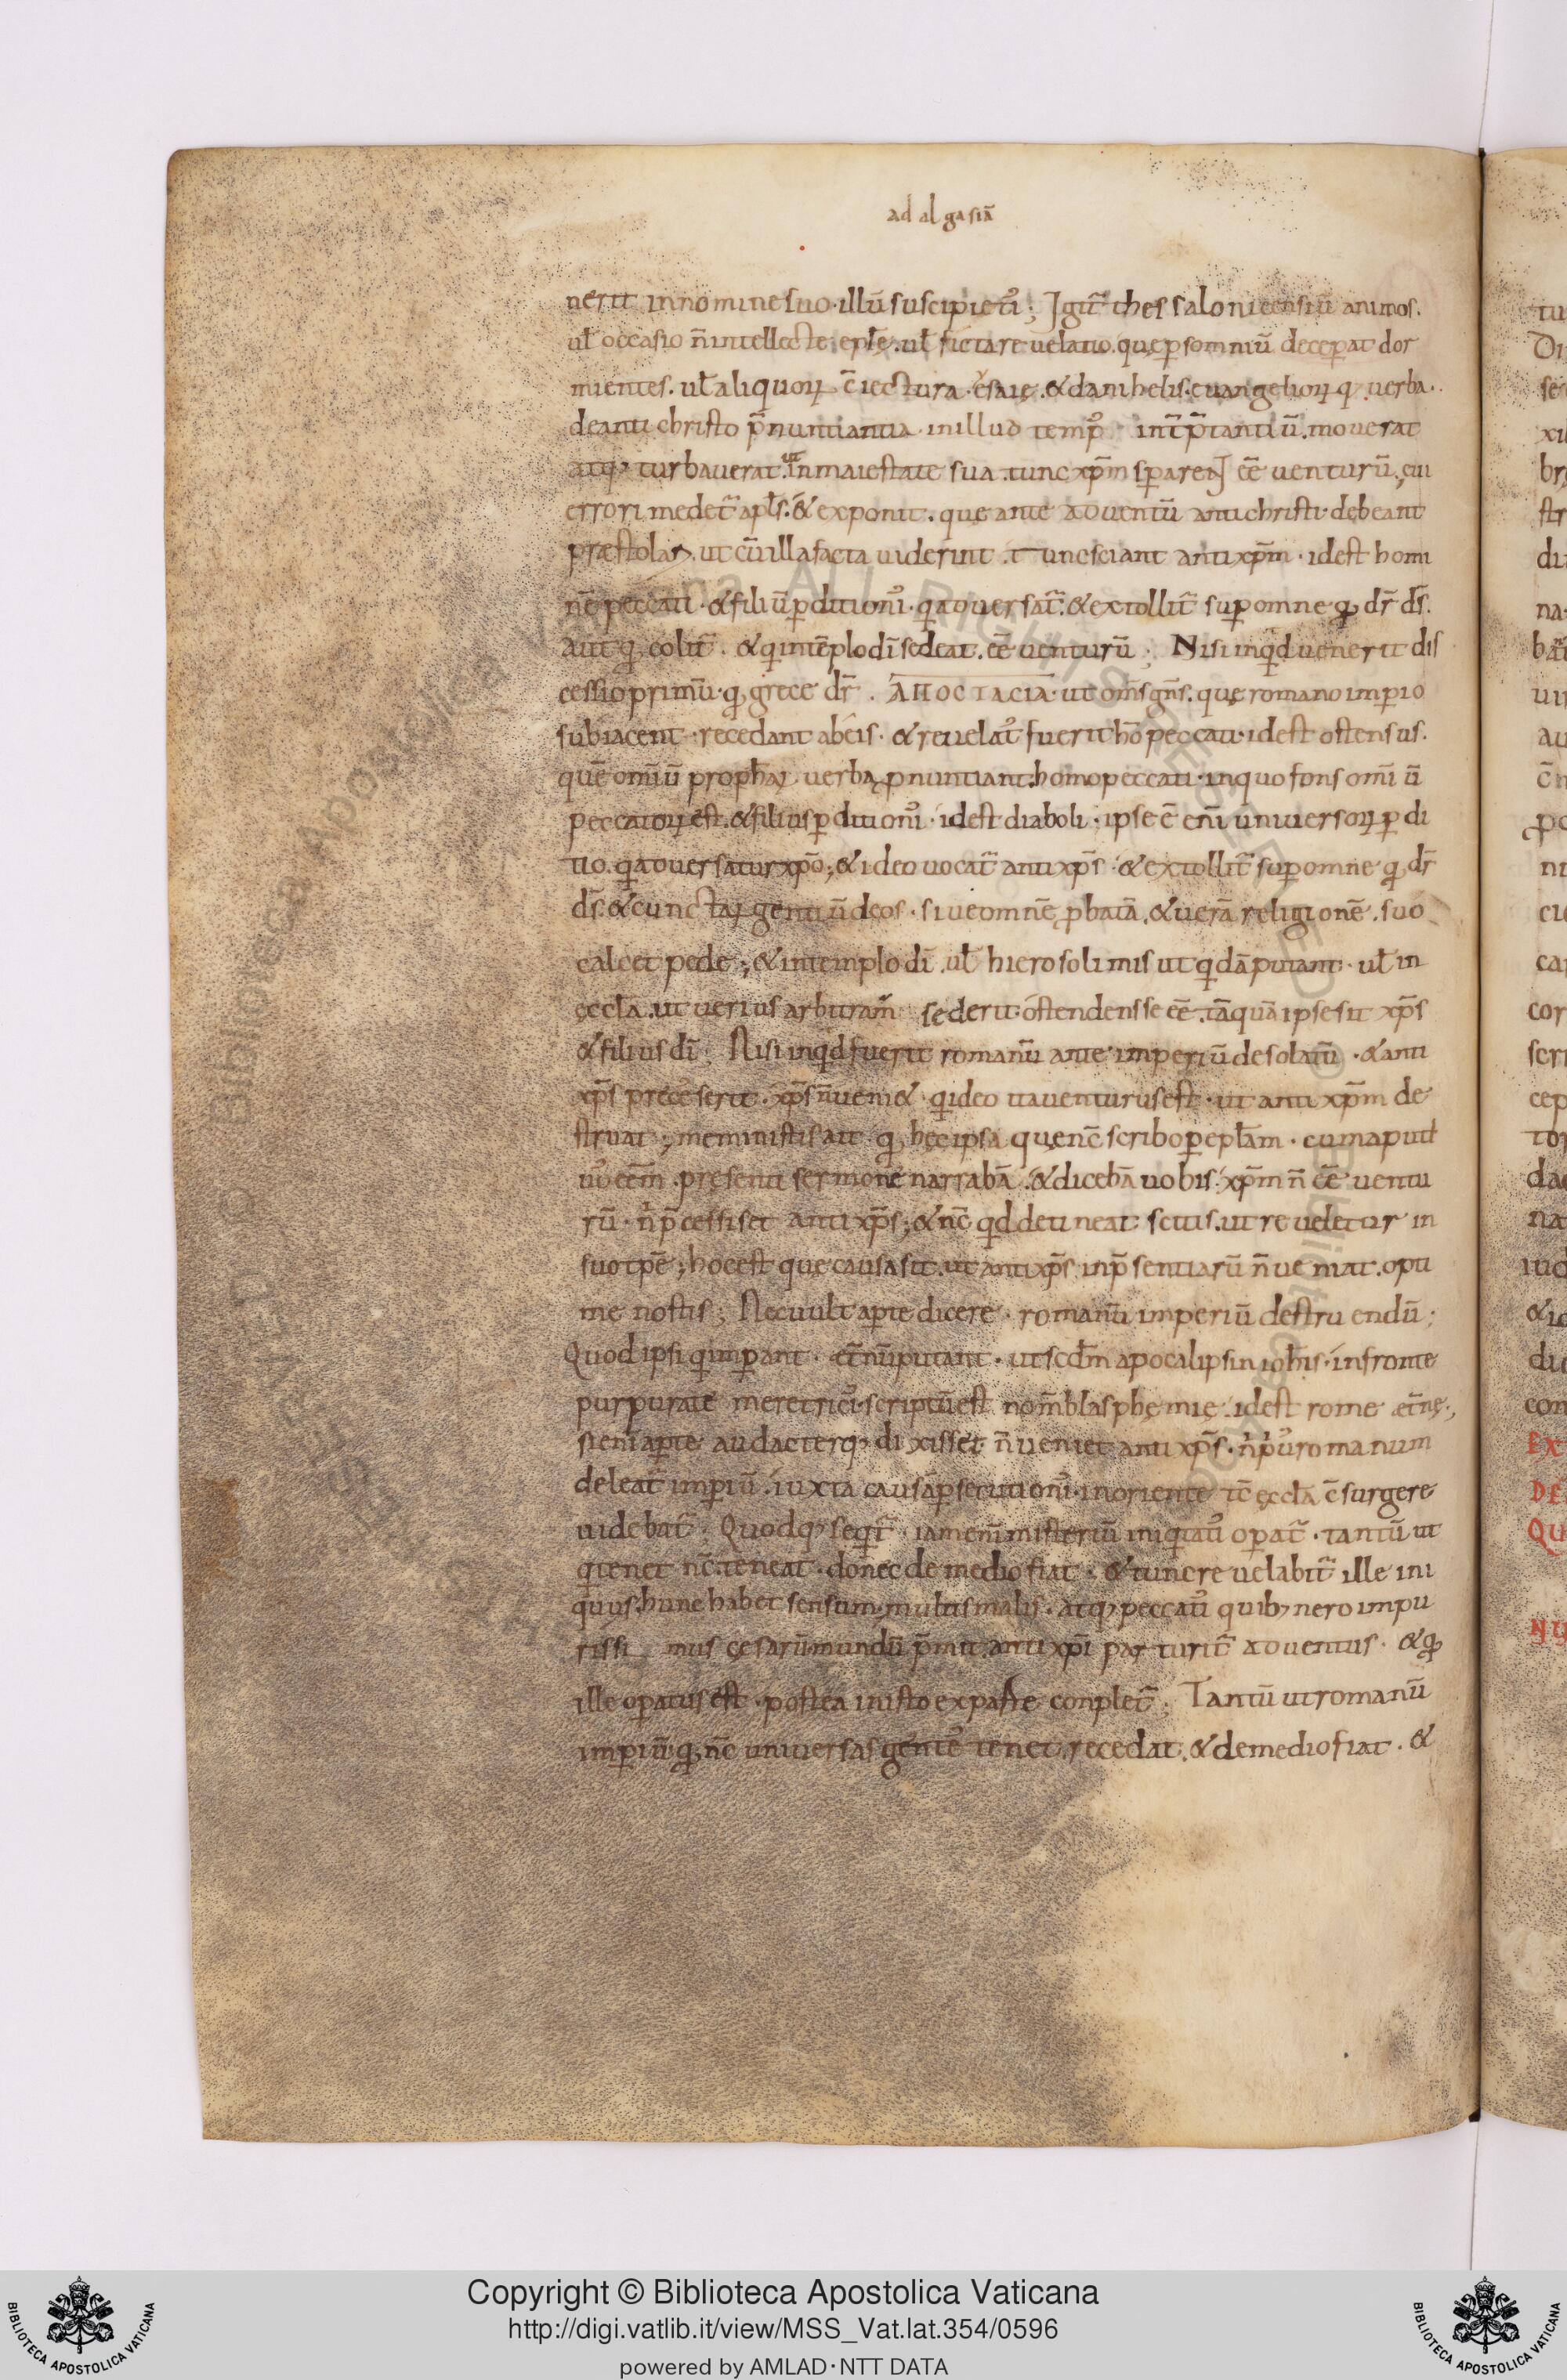 ad algasiā
nerit in nomine suo · illū suscipietis ; Igit̃ thessalonicensiū animos .
ul̃ occasio n̄ intellecte epl̃ę . ul̃ ficta revelatio . quę p somniū deceperat dor
mientes . ul̃ aliquoꝝ c̄iectura . esaię . & danihelis . euangelioꝝ q; verba .
de antichristo p̄nuntiantia . in illud temp' int̄p̄tantiū . moverat
atq; turbaverat . ut in maiestate sua . tunc xp̄m sperarent eē venturū . cui
errori medet̃ apl̃s . & exponit . que ante adventū antichristi . debeant
præstolari . ut cū illa facta viderint . tunc sciant antixp̄m · id est homi
nē peccati · & filiū pditionis . qui adversat̃ . & extollit̃ sup omne qd dr̄ ds̄ .
aut qd colit̃ . & qui in tēplo dī sedeat . eē venturū ; Nisi inquid venerit dis
cessio primū . qd grece dr̄ . ΑΠΟCΤΑCΙΑ · ut om̄s gn̄s . quę romano imperio
subiacent · recedant ab eis · & revelat' fuerit hō peccati · id est ostensus .
quē om̄iū prophaꝝ verba p̄nuntiant . homo peccati · in quo fons om̄iū
peccatoꝝ est . & filius pditionis · id est diaboli · ipse ē eni universoꝝ pdi
tio . qui adversatur xp̄o ; & ideo vocat̃ antixp̄s · & extollit̃ sup omne qd dr̄
ds̄ . & cunctaꝝ gentiū deos · sive omnē pbatā . & verā religionē . suo
calcet pede ; & in templo dī . ul̃ hierosolimis ut quidā putant · ul̃ in
ęccl̃a . ut verius arbitram̃ sederit . ostendens se eē . tāquā ipse sit xp̄s
& filius dī ; Nisi inquid fuerit romanū ante imperiū desolatū · & anti
xp̄s precesserit . xp̄s n̄ veni& · qui ideo ita venturus est · ut antixp̄m de
struat ; meministis ait qd hęc ipsa quę nc̄ scribo p epl̃am · cum aput
vos eēm . pręsenti sermone narrabā . & dicebā vobis . xp̄m n̄ eē ventu
rū · n' p̄cessisset antixp̄s ; & nc̄ quid detineat scitis . ut reveletur in
suo tp̄e ; hoc est quę causa sit . ut antixp̄s in p̄sentiarū n̄ veniat . opti
me nostis ; Nec vult aperte dicere · romanū imperiū destruendū ;
Quod ipsi qui imperant · et̄nū putant · ut scdm̄ apocalipsin ioh̄is · in fronte
purpurate meretricis scriptū est nom̄ blasphęmię . id est rome æt̄nę ;
si enī aperte audacterq; dixisset n̄ veniet antixp̄s · n' p'us romanum
deleat̃ imperiū . iuxta causā psecutionis · in oriente tc̄ ęccl̃a c̄surgere
videbat̃ · Quodq; seqt̃ · iam enī misteriū iniquitatis operat̃ · tantū ut
qui tenet nc̄ . teneat · donec de medio fiat · & tunc revelabit̃ ille ini
quus . hunc habet sensum . multis malis · atq; peccatis quib; nero impu
rissimus cęsarū mundū p̄mit . antixp̄i parturit̃ adventus · & qd
ille operatus est · postea in isto ex parte conplet̃ ; Tantū ut romanū
imperiū . qd nc̄ universas gentes tenet . recedat . & de medio fiat . &
Copyright © Biblioteca Apostolica Vaticana
http://digi.vatlib.it/view/MSS_Vat.lat.354/0596
powered by AMLAD · NTT DATA
BIBLIOTECA APOSTOLICA VATICANA
BIBLIOTECA APOSTOLICA VATICANA